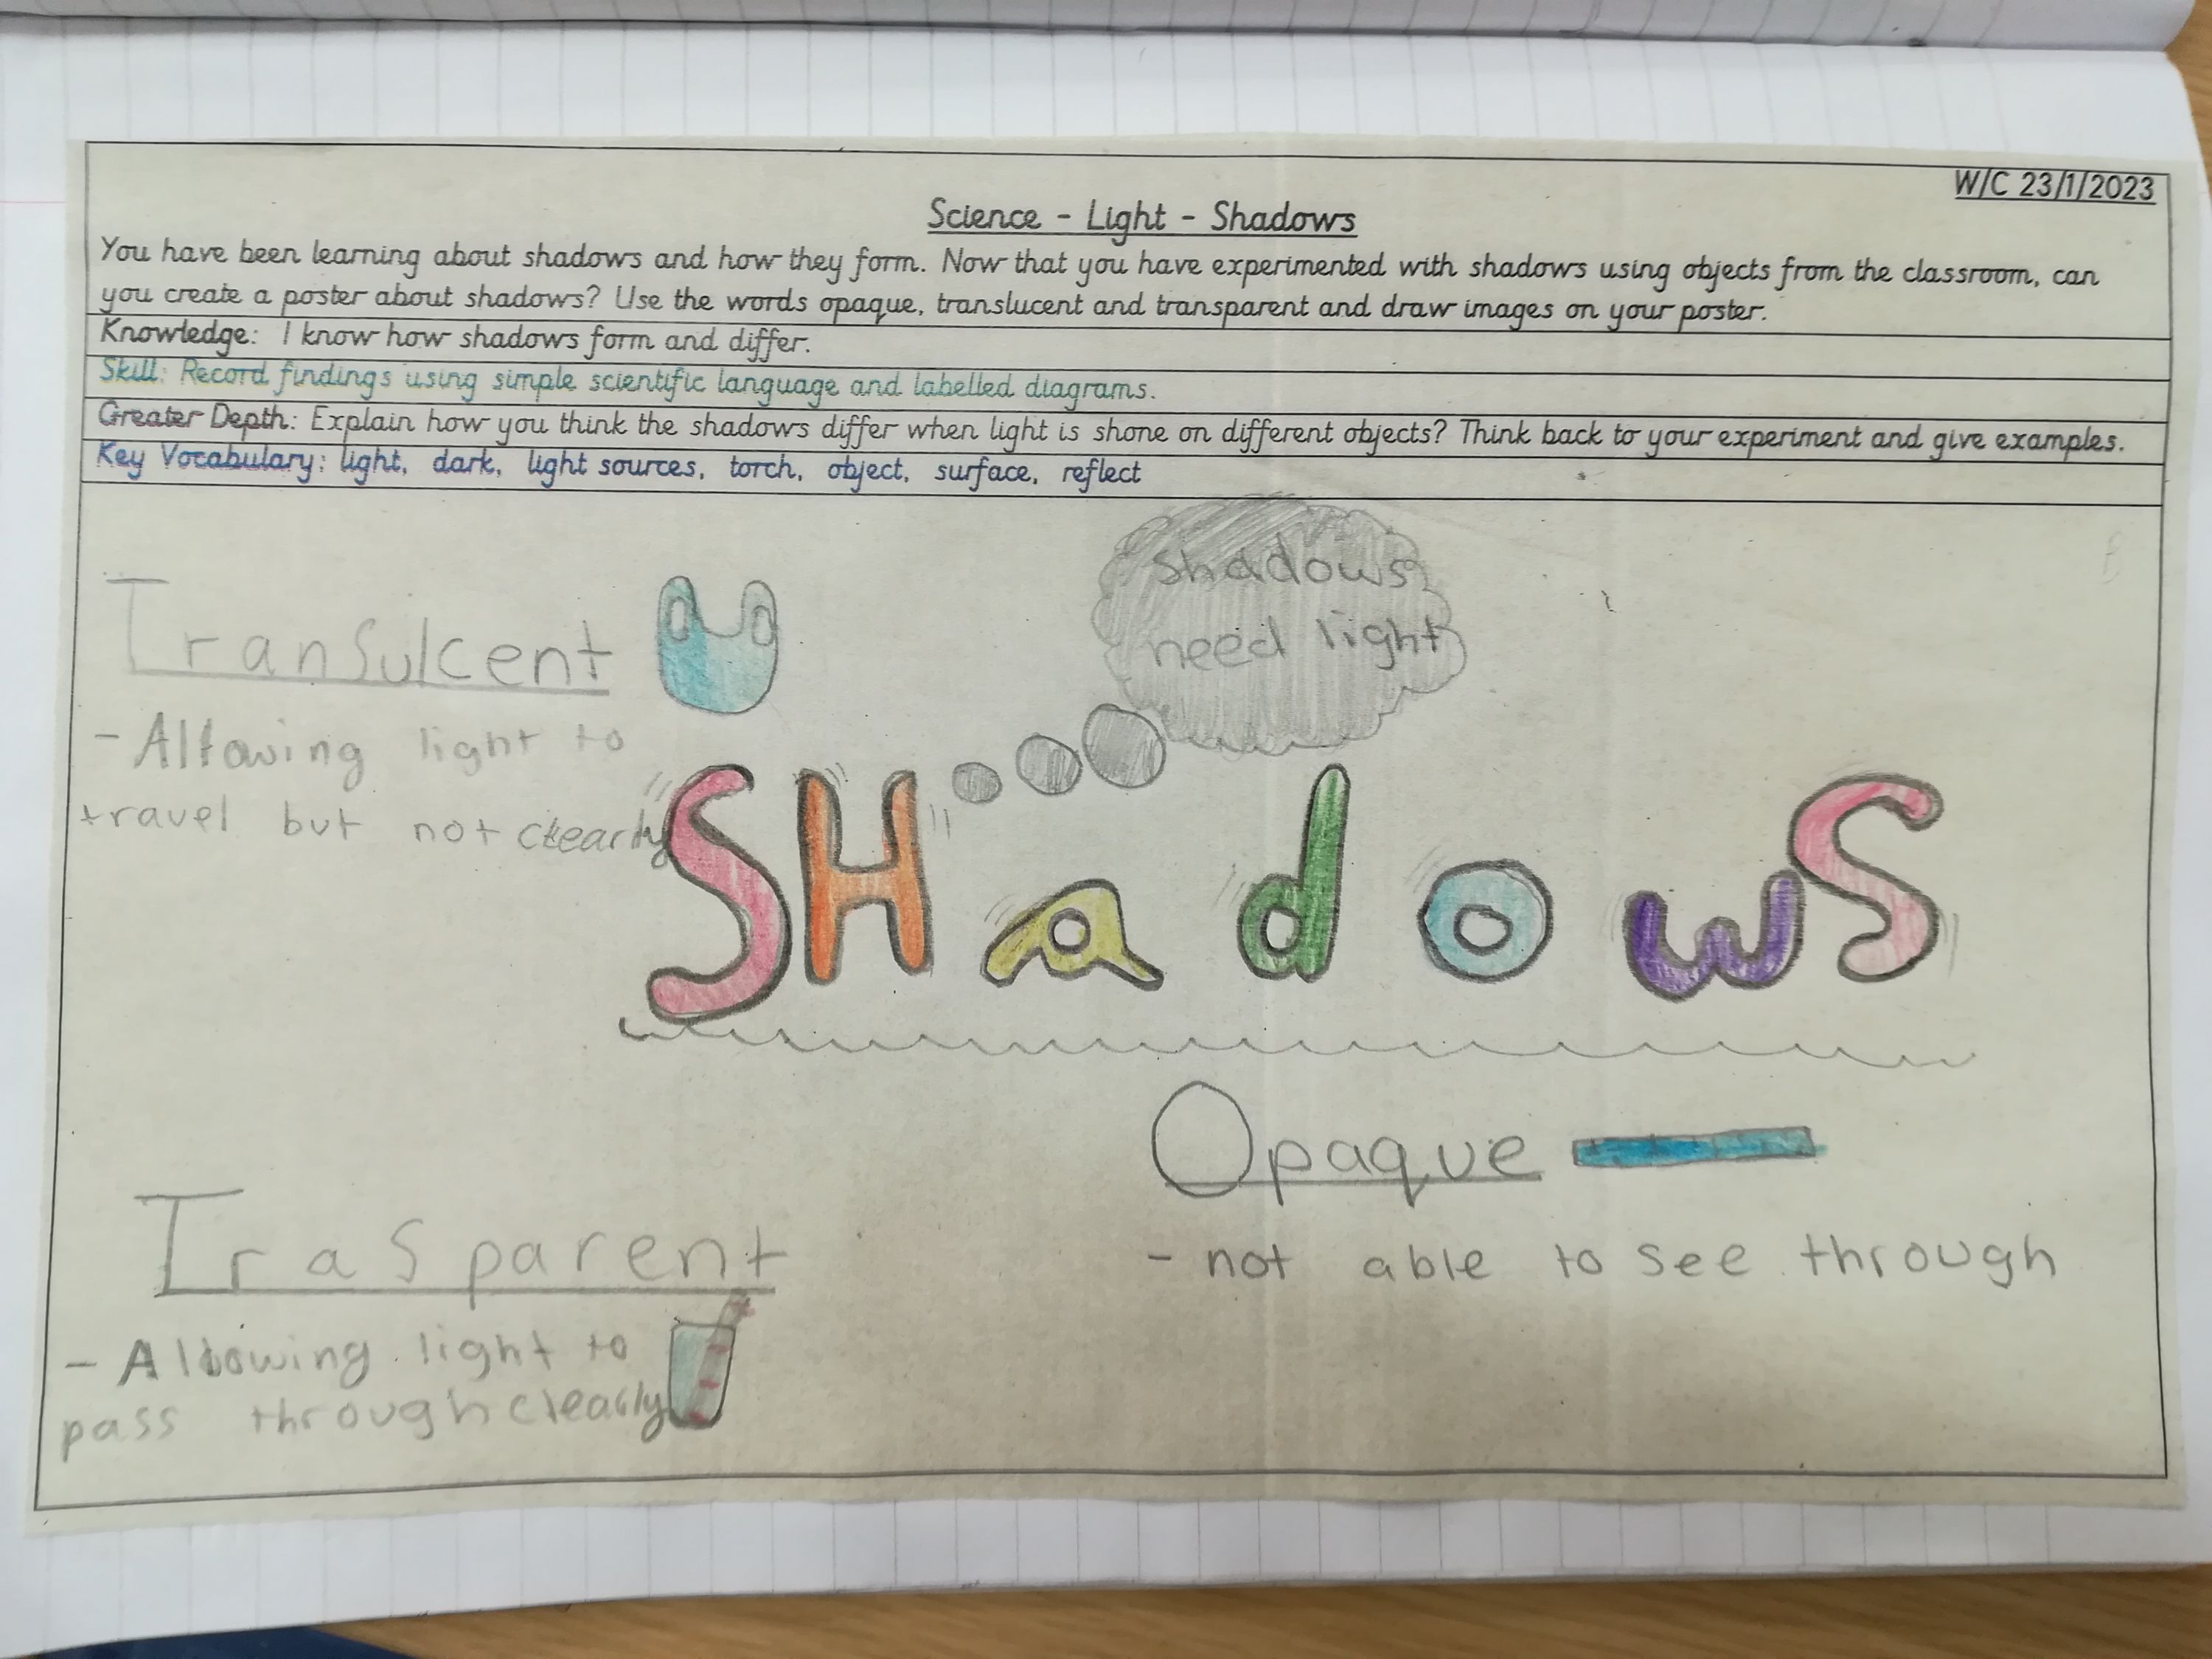 W/C 23/1/2023
Science - Light - Shadows
You have been learning about shadows and how they form. Now that you have experimented with shadows using objects from the classroom, can
you create a poster about shadows? Use the words opaque, translucent and transparent and draw images on your poster.
Knowledge: I know how shadows form and differ.
Skill: Record findings using simple scientific language and labelled diagrams.
Greater Depth: Explain how you think the shadows differ when light is shone on different objects? Think back to your experiment and give examples.
Key Vocabulary: light, dark, light sources, torch, object, surface, reflect
shadows
need light
Transulcent
- Allowing light to
travel but not clearly
SHadowS
Opaque
- not able to see through
Trasparent
- Allowing light to
pass through clearly